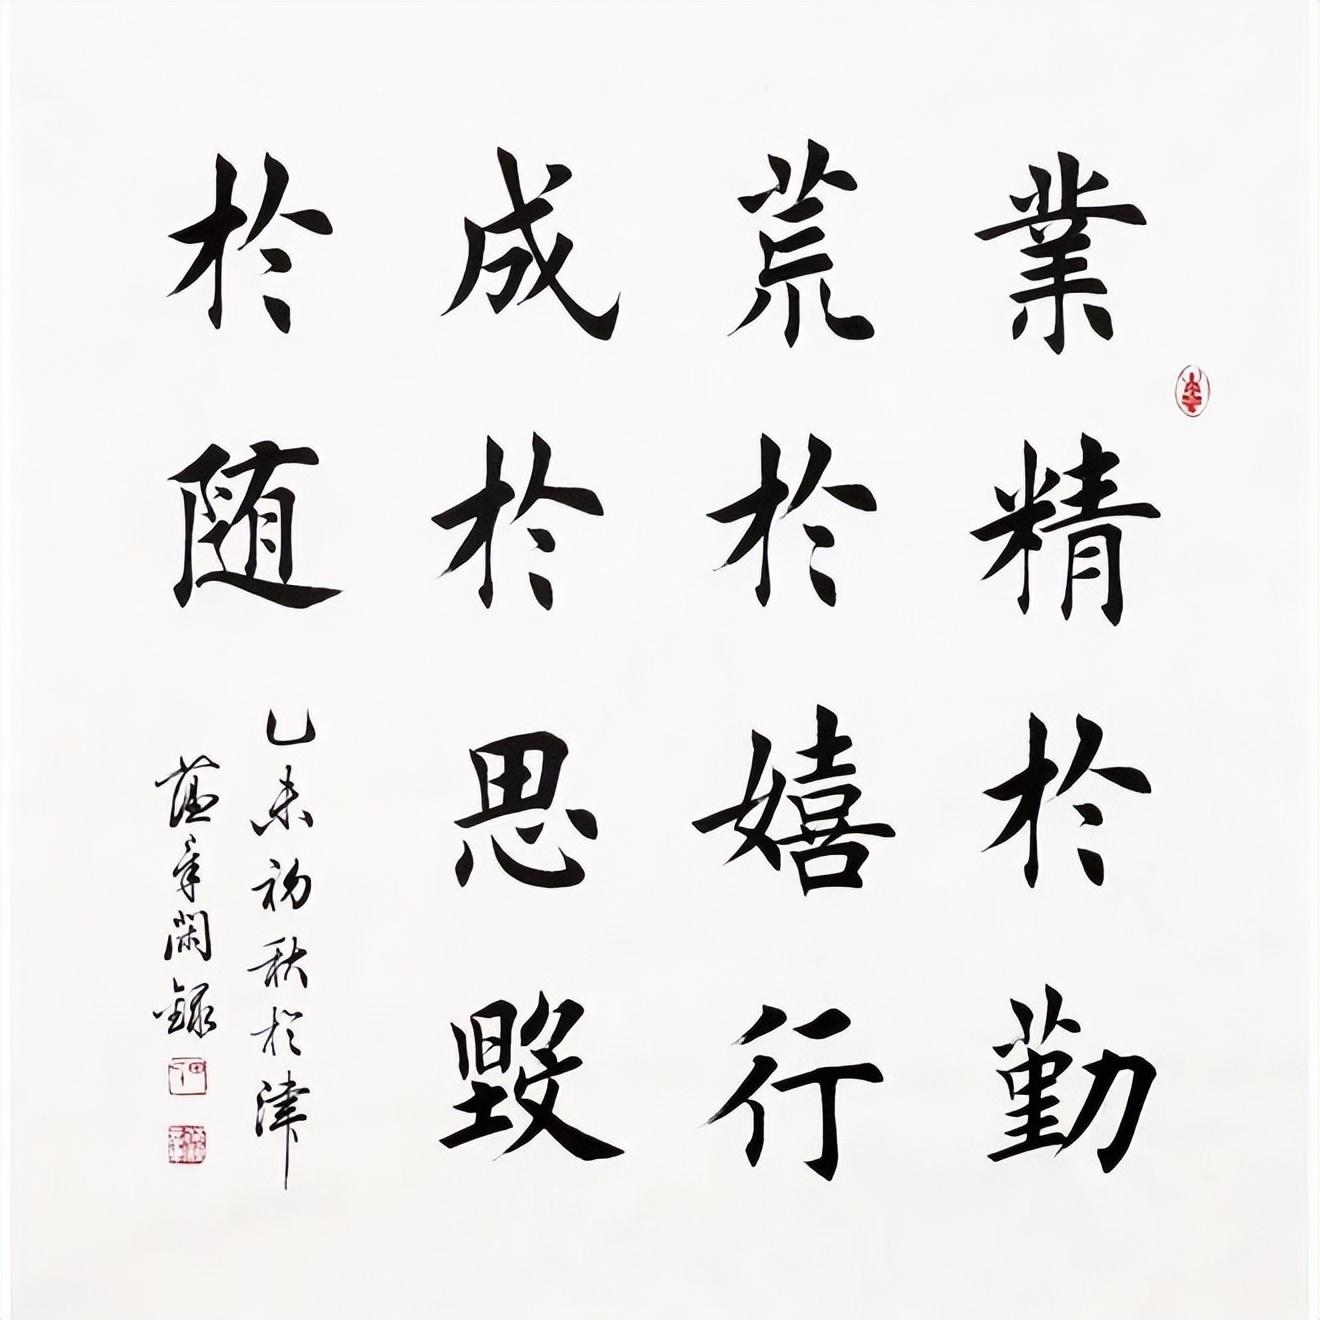 業精於勤
荒於嬉行
成於思毁
於随
乙未初秋於津
蕴章閑録